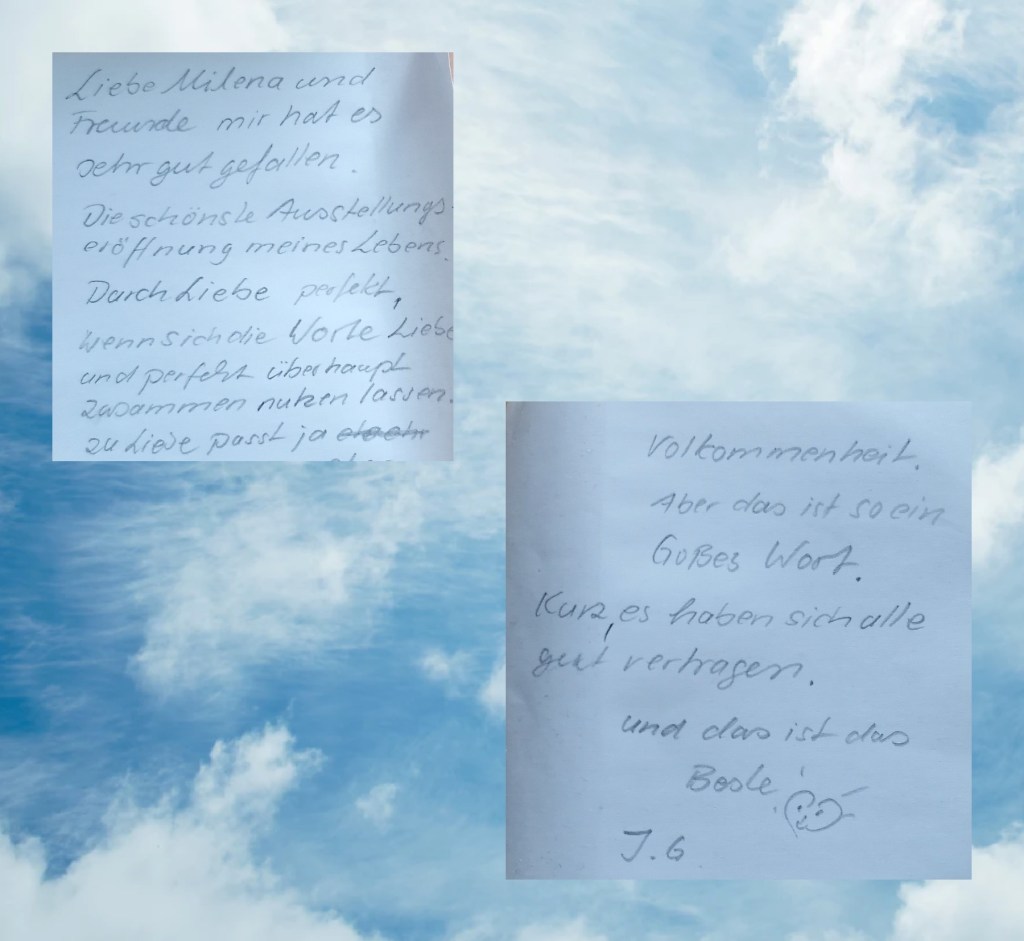 Liebe Milena und
Freunde mir hat es
sehr gut gefallen.
Die schönste Ausstellungs-
eröffnung meines Lebens.
Durch Liebe perfekt,
Wenn sich die Worte Liebe
und perfekt überhaupt
zusammen nutzen lassen.
zu Liebe passt ja
Volkommenheit.
Aber das ist so ein
Goßes Wort.
Kurz, es haben sich alle
gut vertragen.
und das ist das
Beste!
J.G